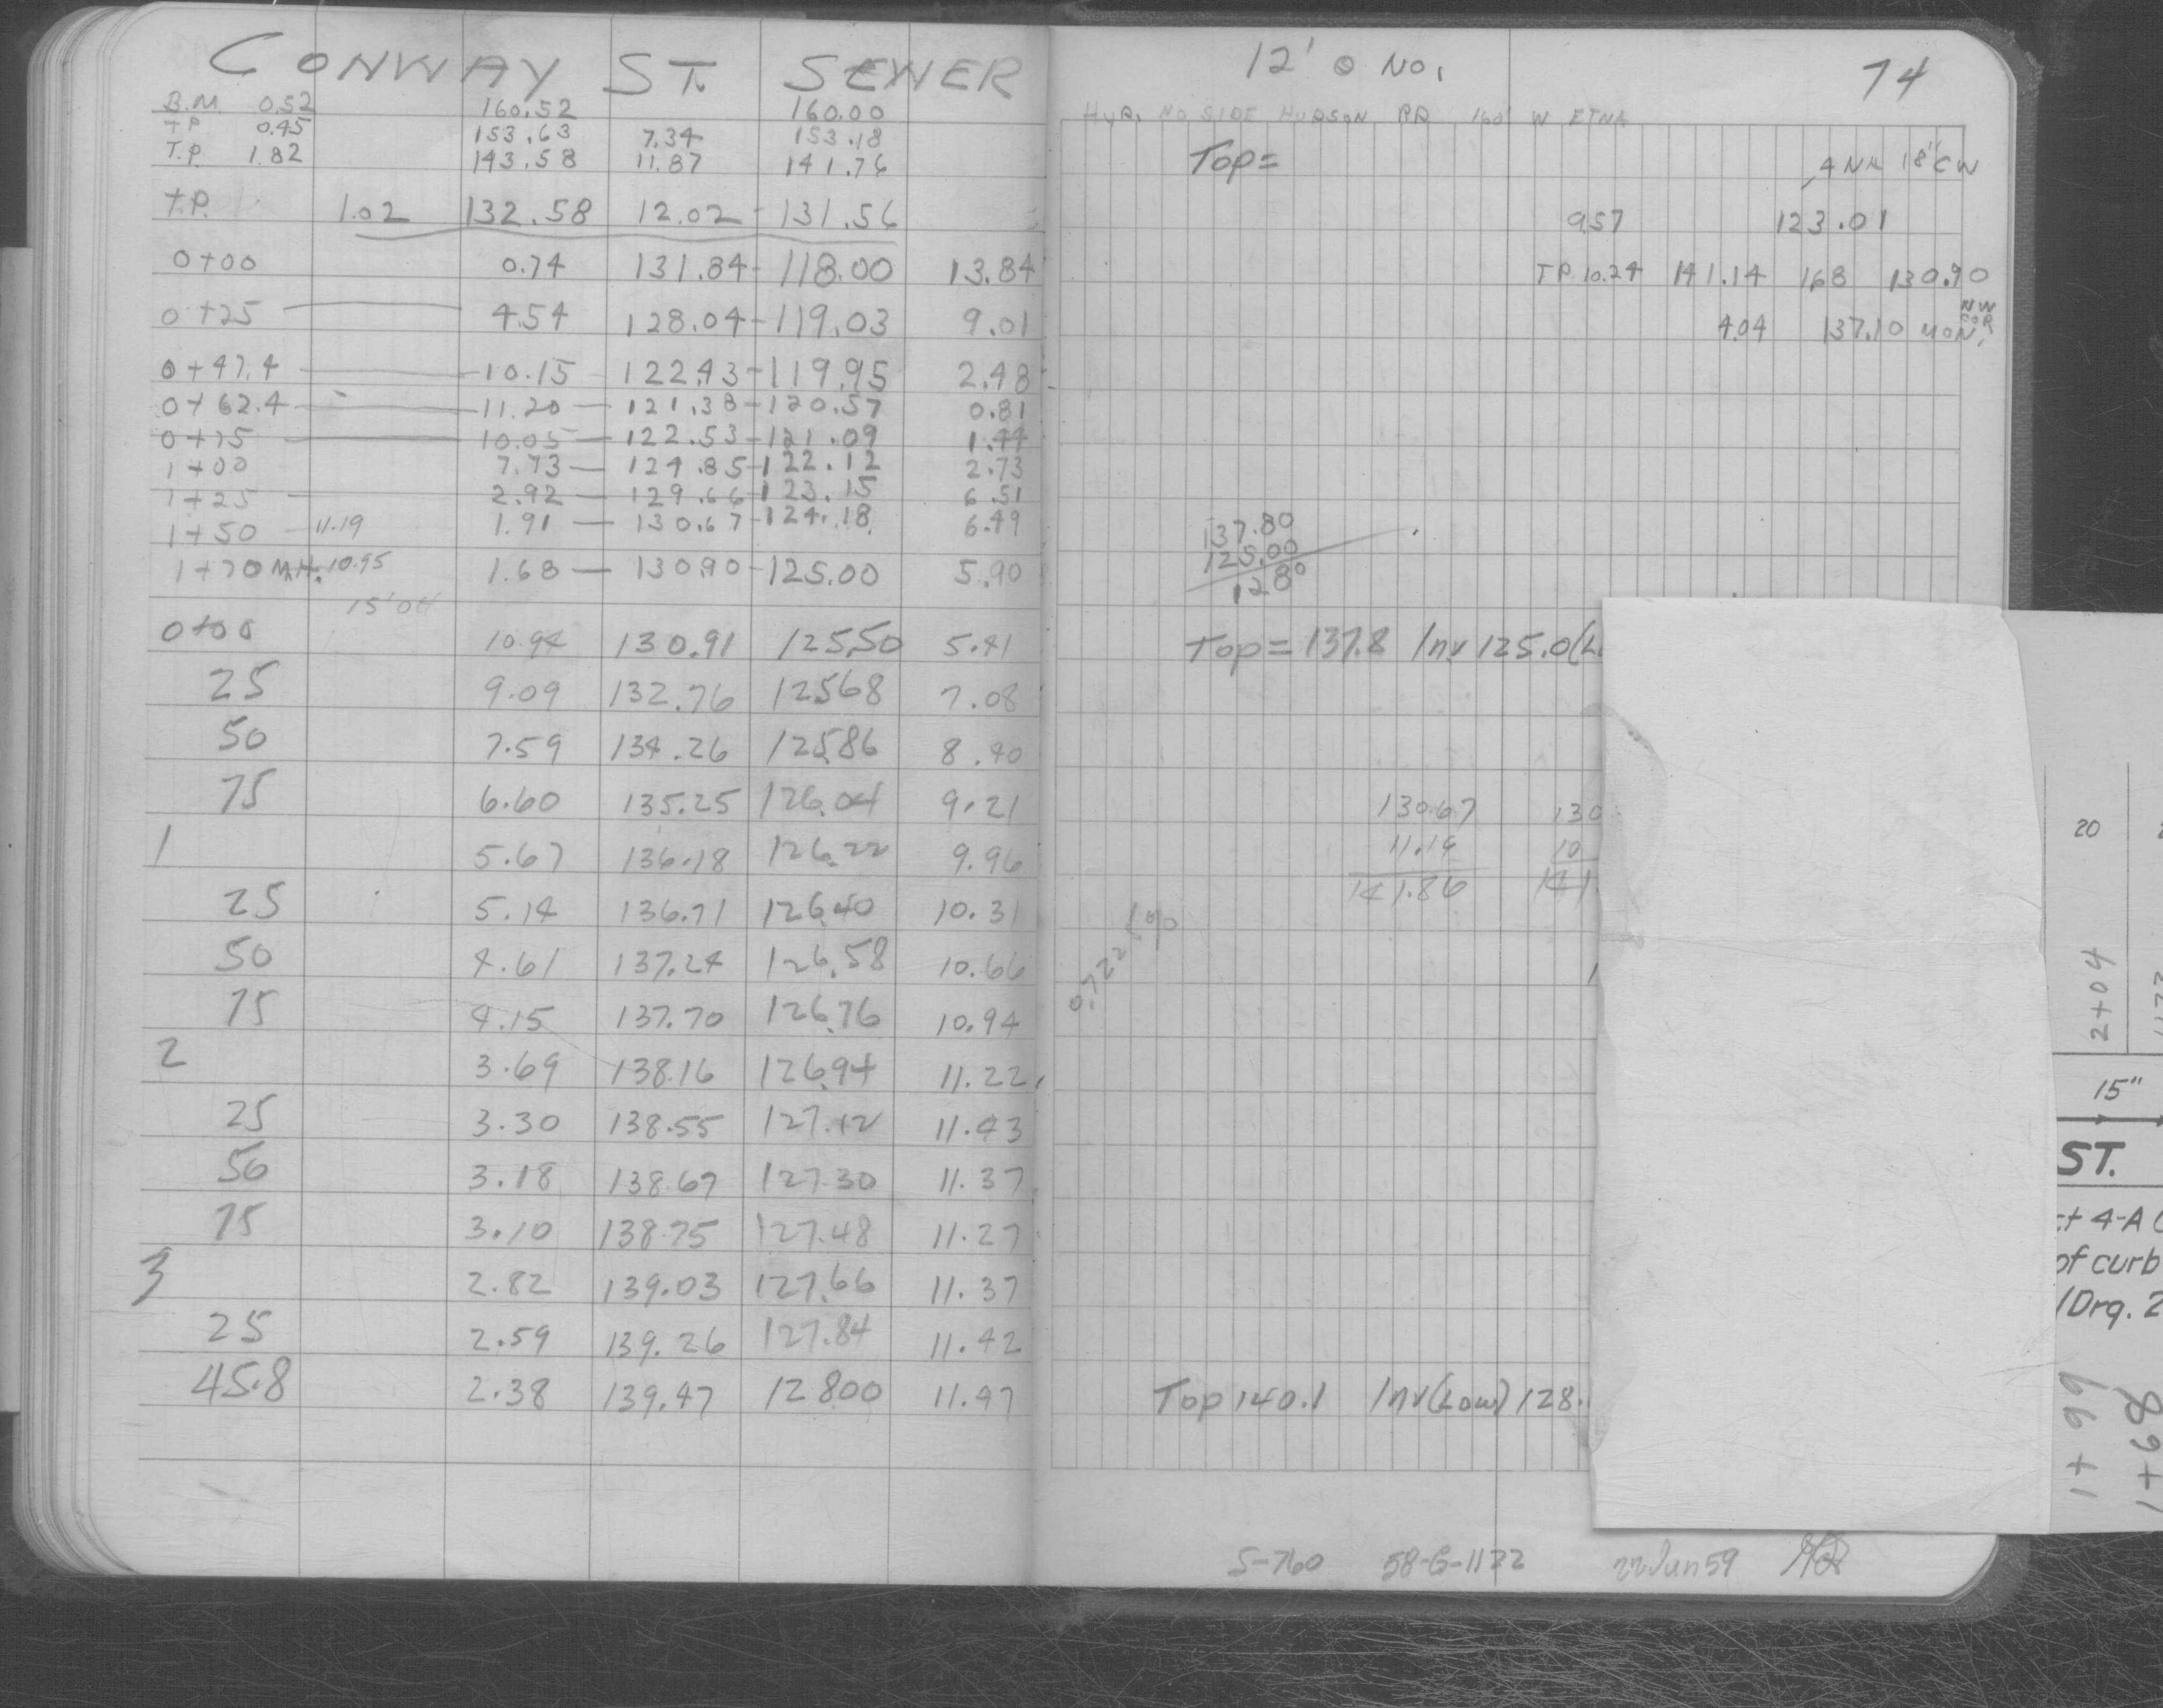 CONWAY ST. SEWER
B.M. 0.52 160.52 160.00
T.P. 0.45 153.63 7.34 153.18
T.P. 1.82 143.58 11.87 141.76
T.P. 1.02 132.58 12.02 - 131.56
0+00 0.74 131.84 - 118.00 13.84
0+25 4.54 128.04 - 119.03 9.01
0+47.4 10.15 122.43 - 119.95 2.48
0+62.4 11.20 - 121.38 - 120.57 0.81
0+75 10.05 - 122.53 - 121.09 1.44
1+00 7.73 - 124.85 - 122.12 2.73
1+25 2.92 - 129.66 - 123.15 6.51
1+50 11.19 1.91 - 130.67 - 124.18 6.49
1+70 M.H. 10.95 1.68 - 130.90 - 125.00 5.90
15' Off
0+00 10.94 130.91 125.50 5.41
25 9.09 132.76 125.68 7.08
50 7.59 134.26 125.86 8.40
75 6.60 135.25 126.04 9.21
1 5.67 136.18 126.22 9.96
25 5.14 136.71 126.40 10.31
50 4.61 137.24 126.58 10.66
75 4.15 137.70 126.76 10.94
2 3.69 138.16 126.94 11.22
25 3.30 138.55 127.12 11.43
50 3.18 138.67 127.30 11.37
75 3.10 138.75 127.48 11.27
3 2.82 139.03 127.66 11.37
25 2.59 139.26 127.84 11.42
45.8 2.38 139.47 128.00 11.47
12' O No. 74
HYD. NO SIDE HUDSON RD 160' W ETNA
Top=
18" CW
9.57 123.01
T.P. 10.24 141.14 1.68 130.90
NW COR
4.04 137.10 MON.
137.80
125.00
12.80
Top=137.8 Inv 125.0(L
130.67 130
11.19 10
141.86 141.
0.722%
Top 140.1 Inv(Low) 128.
S-760 58-G-1122 22 Jun 59
20
2+04
15"
ST.
ct 4-A
of curb
/Drg. 2
1+99
1+98